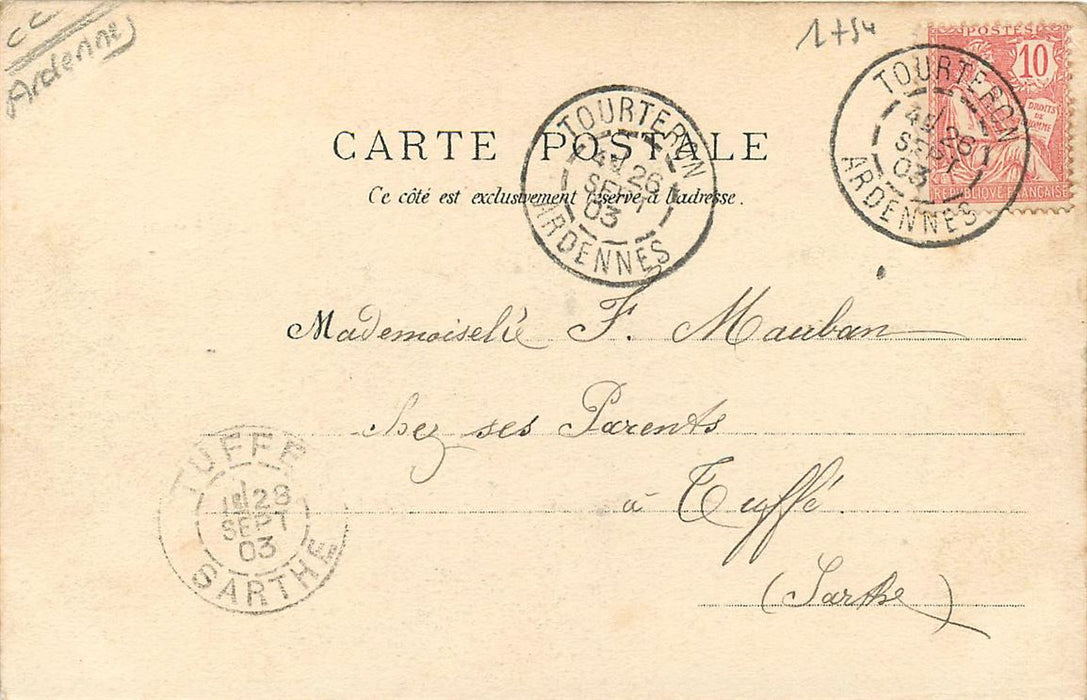 Ardenne
1+54
POSTES
10
DROITS DE L'HOMME
REPUBLIQUE FRANÇAISE
TOURTERON
26
SEPT
03
ARDENNES
TOURTERON
26
SEPT
03
ARDENNES
CARTE POSTALE
Ce côté est exclusivement réservé à l'adresse.
Mademoiselle F. Mauban
chez ses Parents
à Tuffé.
(Sarthe)
TUFFE
28
SEPT
03
SARTHE